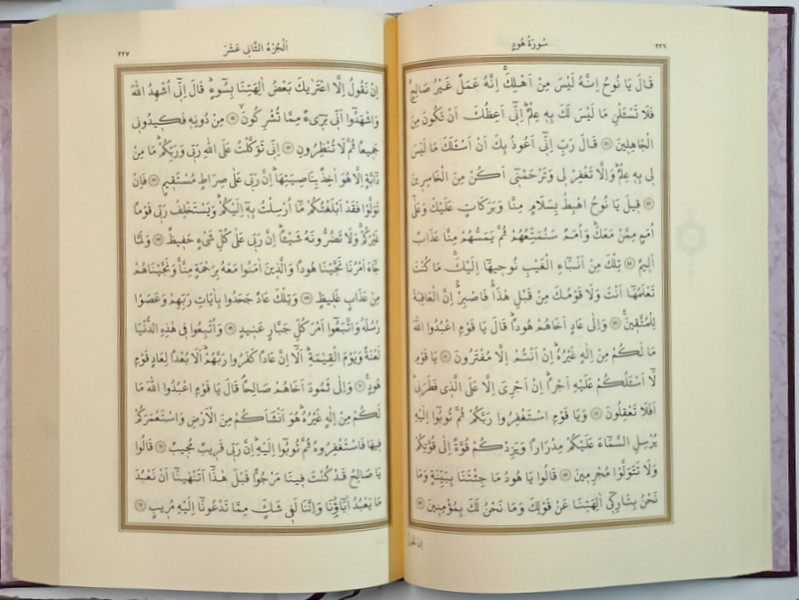 سُورَةُ هُودٍ
٢٢٦
قَالَ يَا نُوحُ اِنَّهُ لَيْسَ مِنْ اَهْلِكَۚ اِنَّهُ عَمَلٌ غَيْرُ صَالِحٍۗ
فَلَا تَسْـَٔلْنِ مَا لَيْسَ لَكَ بِهِ عِلْمٌۜ اِنّٓى اَعِظُكَ اَنْ تَكُونَ مِنَ
الْجَاهِلِينَ ﴿٤٦﴾ قَالَ رَبِّ اِنّٓى اَعُوذُ بِكَ اَنْ اَسْـَٔلَكَ مَا لَيْسَ
لِى بِهِ عِلْمٌۜ وَاِلَّا تَغْفِرْ لِى وَتَرْحَمْنٓى اَكُنْ مِنَ الْخَاسِرِينَ
﴿٤٧﴾ قِيلَ يَا نُوحُ اهْبِطْ بِسَلَامٍ مِنَّا وَبَرَكَاتٍ عَلَيْكَ وَعَلٰٓى
اُمَمٍ مِمَّنْ مَعَكَۜ وَاُمَمٌ سَنُمَتِّعُهُمْ ثُمَّ يَمَسُّهُمْ مِنَّا عَذَابٌ
اَلِيمٌ ﴿٤٨﴾ تِلْكَ مِنْ اَنْبَٓاءِ الْغَيْبِ نُوحِيهَٓا اِلَيْكَۚ مَا كُنْتَ
تَعْلَمُهَٓا اَنْتَ وَلَا قَوْمُكَ مِنْ قَبْلِ هٰذَاۜ فَاصْبِرْۜ اِنَّ الْعَاقِبَةَ
لِلْمُتَّقِينَ۟ ﴿٤٩﴾ وَاِلٰى عَادٍ اَخَاهُمْ هُودًاۜ قَالَ يَا قَوْمِ اعْبُدُوا اللّٰهَ
مَا لَكُمْ مِنْ اِلٰهٍ غَيْرُهُۜ اِنْ اَنْتُمْ اِلَّا مُفْتَرُونَ ﴿٥٠﴾ يَا قَوْمِ
لَٓا اَسْـَٔلُكُمْ عَلَيْهِ اَجْرًاۜ اِنْ اَجْرِىَ اِلَّا عَلَى الَّذِى فَطَرَنِىۜ
اَفَلَا تَعْقِلُونَ ﴿٥١﴾ وَيَا قَوْمِ اسْتَغْفِرُوا رَبَّكُمْ ثُمَّ تُوبُٓوا اِلَيْهِ
يُرْسِلِ السَّمَٓاءَ عَلَيْكُمْ مِدْرَارًا وَيَزِدْكُمْ قُوَّةً اِلٰى قُوَّتِكُمْ
وَلَا تَتَوَلَّوْا مُجْرِمِينَ ﴿٥٢﴾ قَالُوا يَا هُودُ مَا جِئْتَنَا بِبَيِّنَةٍ وَمَا
نَحْنُ بِتَارِكِٓى اٰلِهَتِنَا عَنْ قَوْلِكَ وَمَا نَحْنُ لَكَ بِمُؤْمِنِينَ ﴿٥٣﴾
اِنْ نَقُولُ
اَلْجُزْءُ الثَّانِى عَشَرَ
٢٢٧
اِنْ نَقُولُ اِلَّا اعْتَرٰيكَ بَعْضُ اٰلِهَتِنَا بِسُٓوءٍۜ قَالَ اِنّٓى اُشْهِدُ اللّٰهَ
وَاشْهَدُٓوا اَنّٓى بَرِٓىءٌ مِمَّا تُشْرِكُونَۙ ﴿٥٤﴾ مِنْ دُونِهِ فَكِيدُونِى
جَمِيعًا ثُمَّ لَا تُنْظِرُونِ ﴿٥٥﴾ اِنّٓى تَوَكَّلْتُ عَلَى اللّٰهِ رَبِّى وَرَبِّكُمْۜ مَا مِنْ
دَٓابَّةٍ اِلَّا هُوَ اٰخِذٌ بِنَاصِيَتِهَاۜ اِنَّ رَبِّى عَلٰى صِرَاطٍ مُسْتَقِيمٍ ﴿٥٦﴾ فَاِنْ
تَوَلَّوْا فَقَدْ اَبْلَغْتُكُمْ مَٓا اُرْسِلْتُ بِهِٓ اِلَيْكُمْۜ وَيَسْتَخْلِفُ رَبِّى قَوْمًا
غَيْرَكُمْۚ وَلَا تَضُرُّونَهُ شَيْـًٔاۜ اِنَّ رَبِّى عَلٰى كُلِّ شَىْءٍ حَفِيظٌ ﴿٥٧﴾ وَلَمَّا
جَٓاءَ اَمْرُنَا نَجَّيْنَا هُودًا وَالَّذِينَ اٰمَنُوا مَعَهُ بِرَحْمَةٍ مِنَّاۚ وَنَجَّيْنَاهُمْ
مِنْ عَذَابٍ غَلِيظٍ ﴿٥٨﴾ وَتِلْكَ عَادٌ جَحَدُوا بِاٰيَاتِ رَبِّهِمْ وَعَصَوْا
رُسُلَهُ وَاتَّبَعُٓوا اَمْرَ كُلِّ جَبَّارٍ عَنِيدٍ ﴿٥٩﴾ وَاُتْبِعُوا فِى هٰذِهِ الدُّنْيَا
لَعْنَةً وَيَوْمَ الْقِيٰمَةِۜ اَلَٓا اِنَّ عَادًا كَفَرُوا رَبَّهُمْۜ اَلَا بُعْدًا لِعَادٍ قَوْمِ
هُودٍ۟ ﴿٦٠﴾ وَاِلٰى ثَمُودَ اَخَاهُمْ صَالِحًاۢ قَالَ يَا قَوْمِ اعْبُدُوا اللّٰهَ مَا
لَكُمْ مِنْ اِلٰهٍ غَيْرُهُۜ هُوَ اَنْشَاَكُمْ مِنَ الْاَرْضِ وَاسْتَعْمَرَكُمْ
فِيهَا فَاسْتَغْفِرُوهُ ثُمَّ تُوبُٓوا اِلَيْهِۜ اِنَّ رَبِّى قَرِيبٌ مُجِيبٌ ﴿٦١﴾ قَالُوا
يَا صَالِحُ قَدْ كُنْتَ فِينَا مَرْجُوًّا قَبْلَ هٰذَٓا اَتَنْهٰينَٓا اَنْ نَعْبُدَ
مَا يَعْبُدُ اٰبَٓاؤُ۬نَا وَاِنَّنَا لَفِى شَكٍّ مِمَّا تَدْعُونَٓا اِلَيْهِ مُرِيبٍ ﴿٦٢﴾